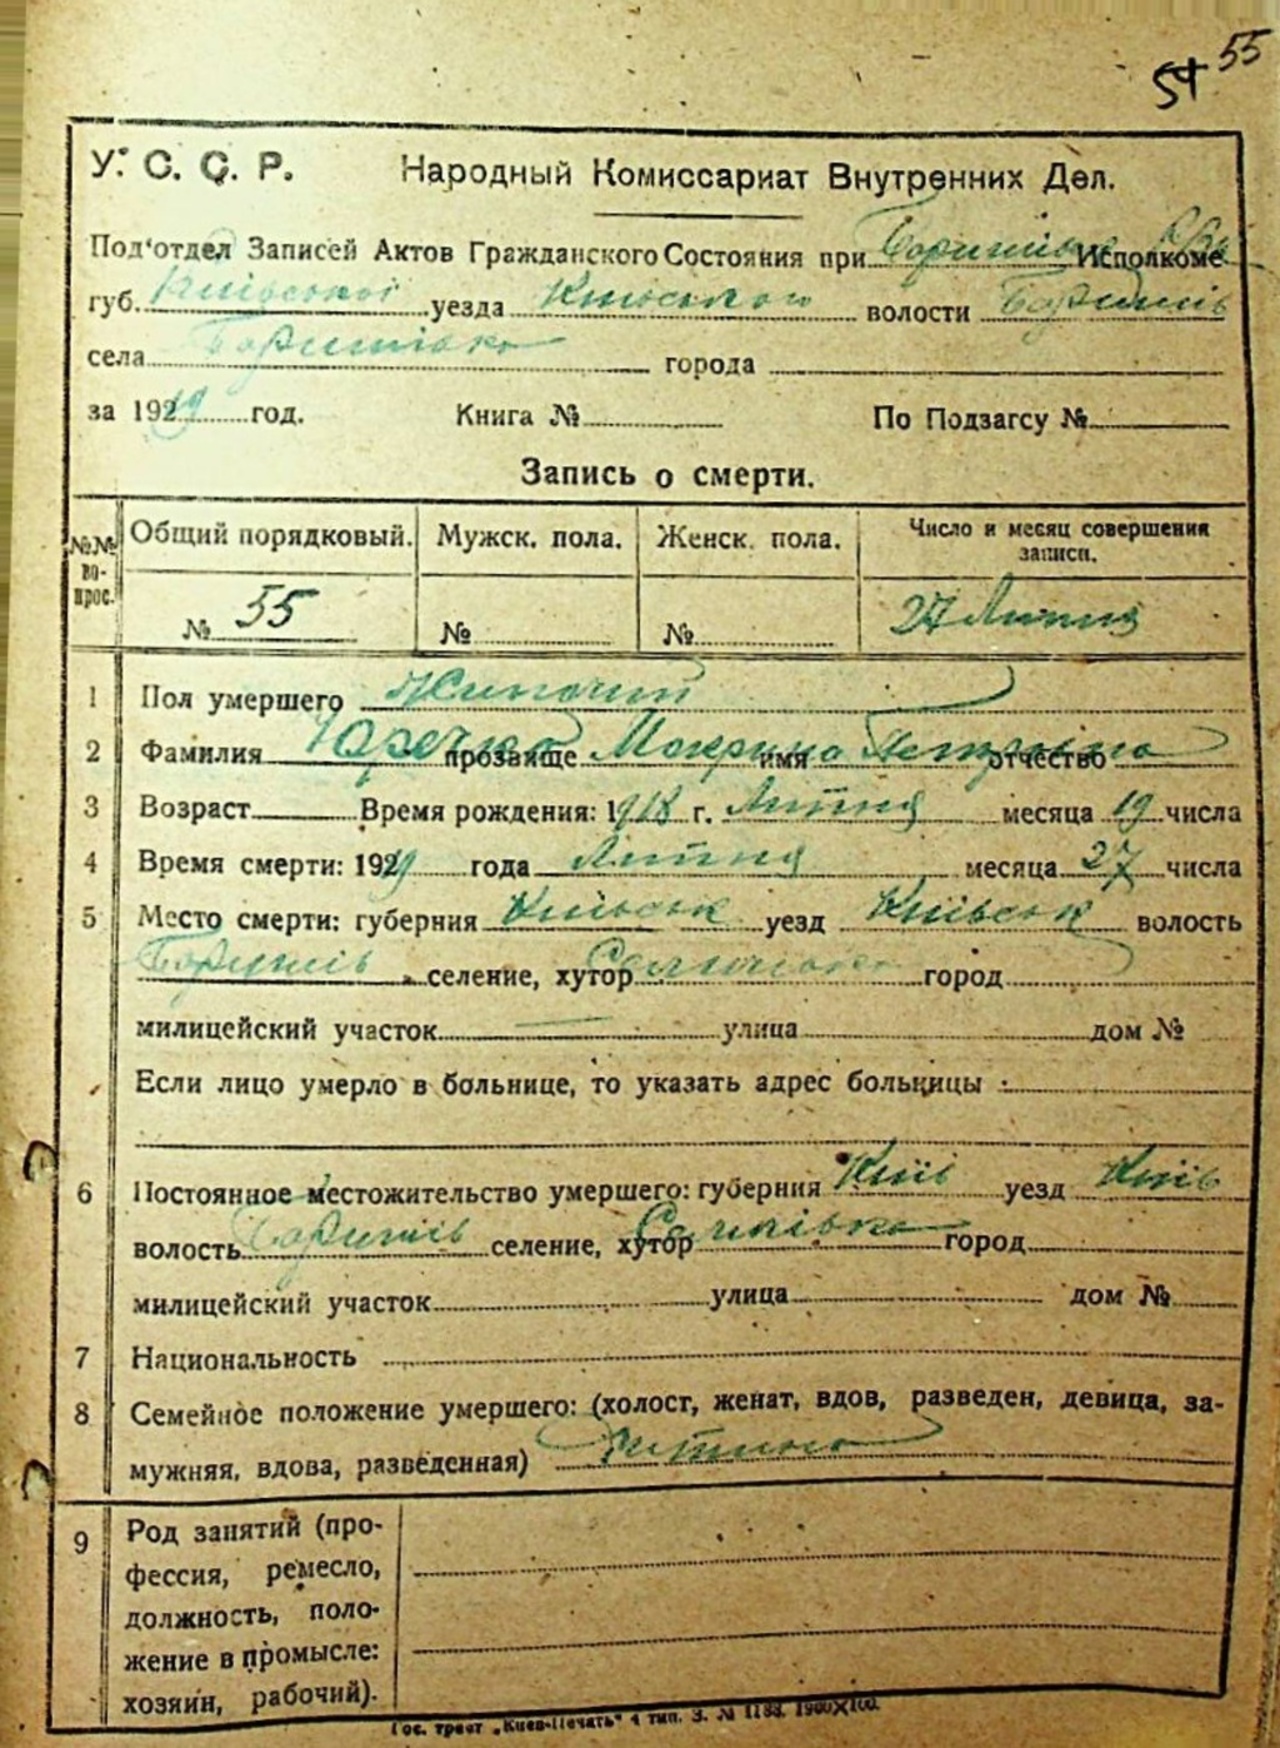 54 55
У. С. С. Р. Народный Комиссариат Внутренних Дел.
Под'отдел Записей Актов Гражданского Состояния при Исполкоме
губ. Київської уезда Київського волости
села города
за 1919 год. Книга № По Подзагсу №
Запись о смерти.
№№ во- прос. Общий порядковый. Мужск. пола. Женск. пола. Число и месяц совершения записи.
№ 55 № № 27 Липня
1 Пол умершего Жиночий
2 Фамилия прозвище Мокрина имя Петровна отчество
3 Возраст Время рождения: 1918 г. Липня месяца 19 числа
4 Время смерти: 1919 года Липня месяца 27 числа
5 Место смерти: губерния Київськ уезд Київськ волость
селение, хутор город
милицейский участок — улица дом №
Если лицо умерло в больнице, то указать адрес больницы :
6 Постоянное местожительство умершего: губерния Київ уезд Київ
волость селение, хутор город
милицейский участок улица дом №
7 Национальность
8 Семейное положение умершего: (холост, женат, вдов, разведен, девица, за-
мужняя, вдова, разведенная)
9 Род занятий (про-
фессия, ремесло,
должность, поло-
жение в промысле:
хозяин, рабочий).
Гос. трест „Киев-Печать" 4 тип. З. № 1188. 1900×100.